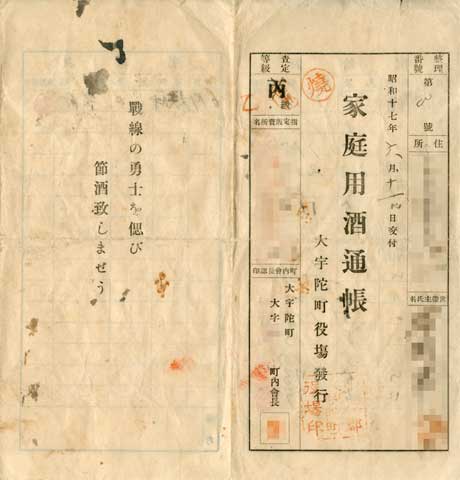 整理番號
第 號
住所
世帶主氏名
昭和十七年 六月十一日交付
家庭用酒通帳
大宇陀町役場發行
燒
査定等級
丙級
乙
指定販賣所名
町內會長認印
大宇陀町
大字
町內會長
戰線の勇士を偲び
節酒致しませう